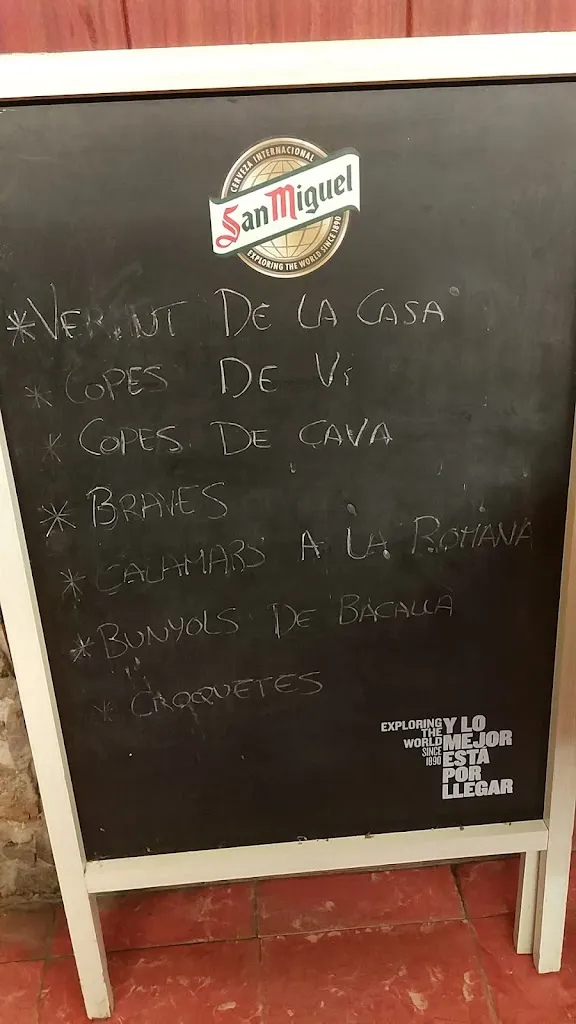 CERVEZA INTERNACIONAL
San Miguel
EXPLORING THE WORLD SINCE 1890
* DE LA CASA
* COPES DE VI
* COPES DE CAVA
* BRAVES
* CALAMARS A LA ROMANA
* BUNYOLS DE BACALLÀ
* CROQUETES
EXPLORING
THE
WORLD
SINCE
1890
Y LO
MEJOR
ESTÁ
POR
LLEGAR